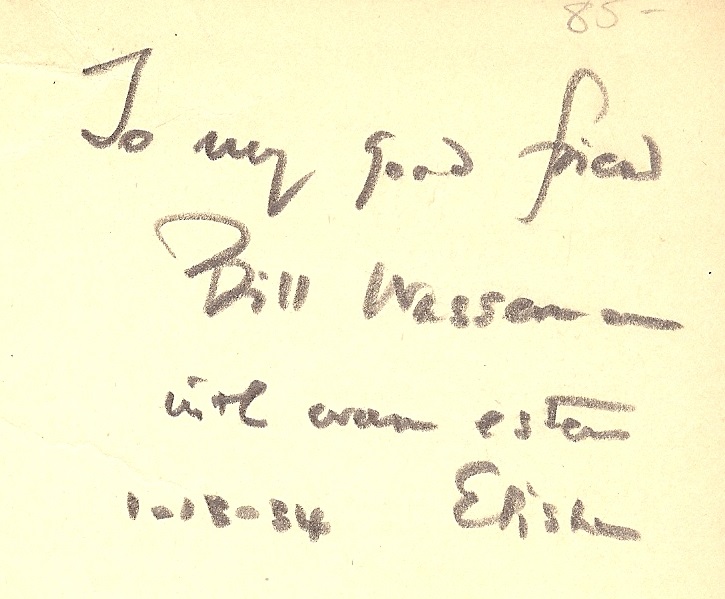 85-
To my good friend
Bill Wasserman
with warm esteem
Elisha